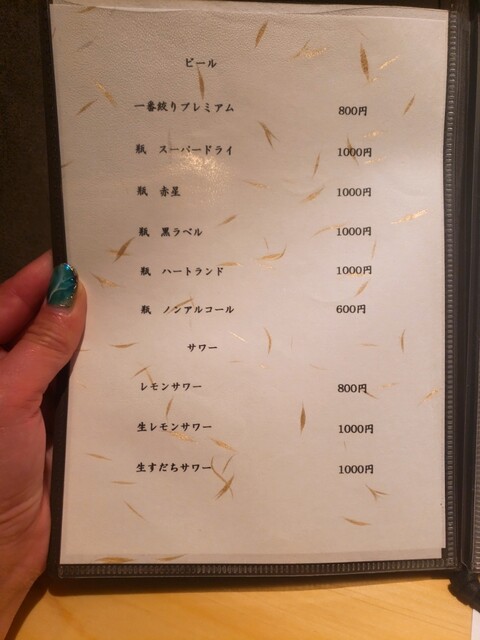 ビール
一番絞りプレミアム 800円
瓶 スーパードライ 1000円
瓶 赤星 1000円
瓶 黒ラベル 1000円
瓶 ハートランド 1000円
瓶 ノンアルコール 600円
サワー
レモンサワー 800円
生レモンサワー 1000円
生すだちサワー 1000円